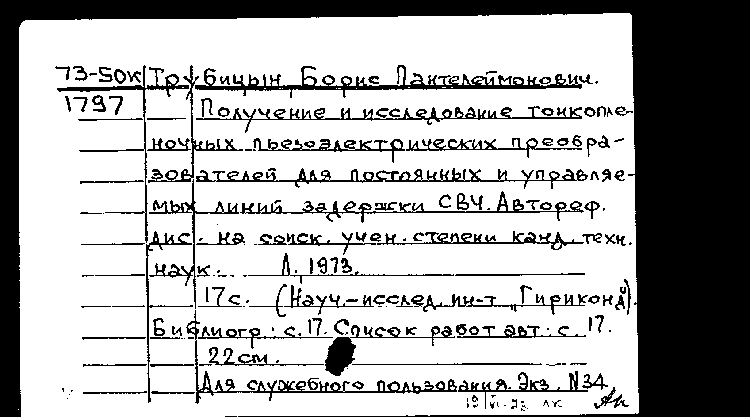 73-50к Трубицын, Борис Пантелеймонович.
1797 Получение и исследование тонкопле-
ночных пьезоэлектрических преобра-
зователей для постоянных и управляе-
мых линий задержки СВЧ. Автореф.
дис. на соиск. учен. степени канд. техн.
наук. Л., 1973.
17с. (Науч.-исслед. ин-т „Гириконд“).
Библиогр.: с. 17. Список работ авт.: с. 17.
22см.
Для служебного пользования. Экз. N34.